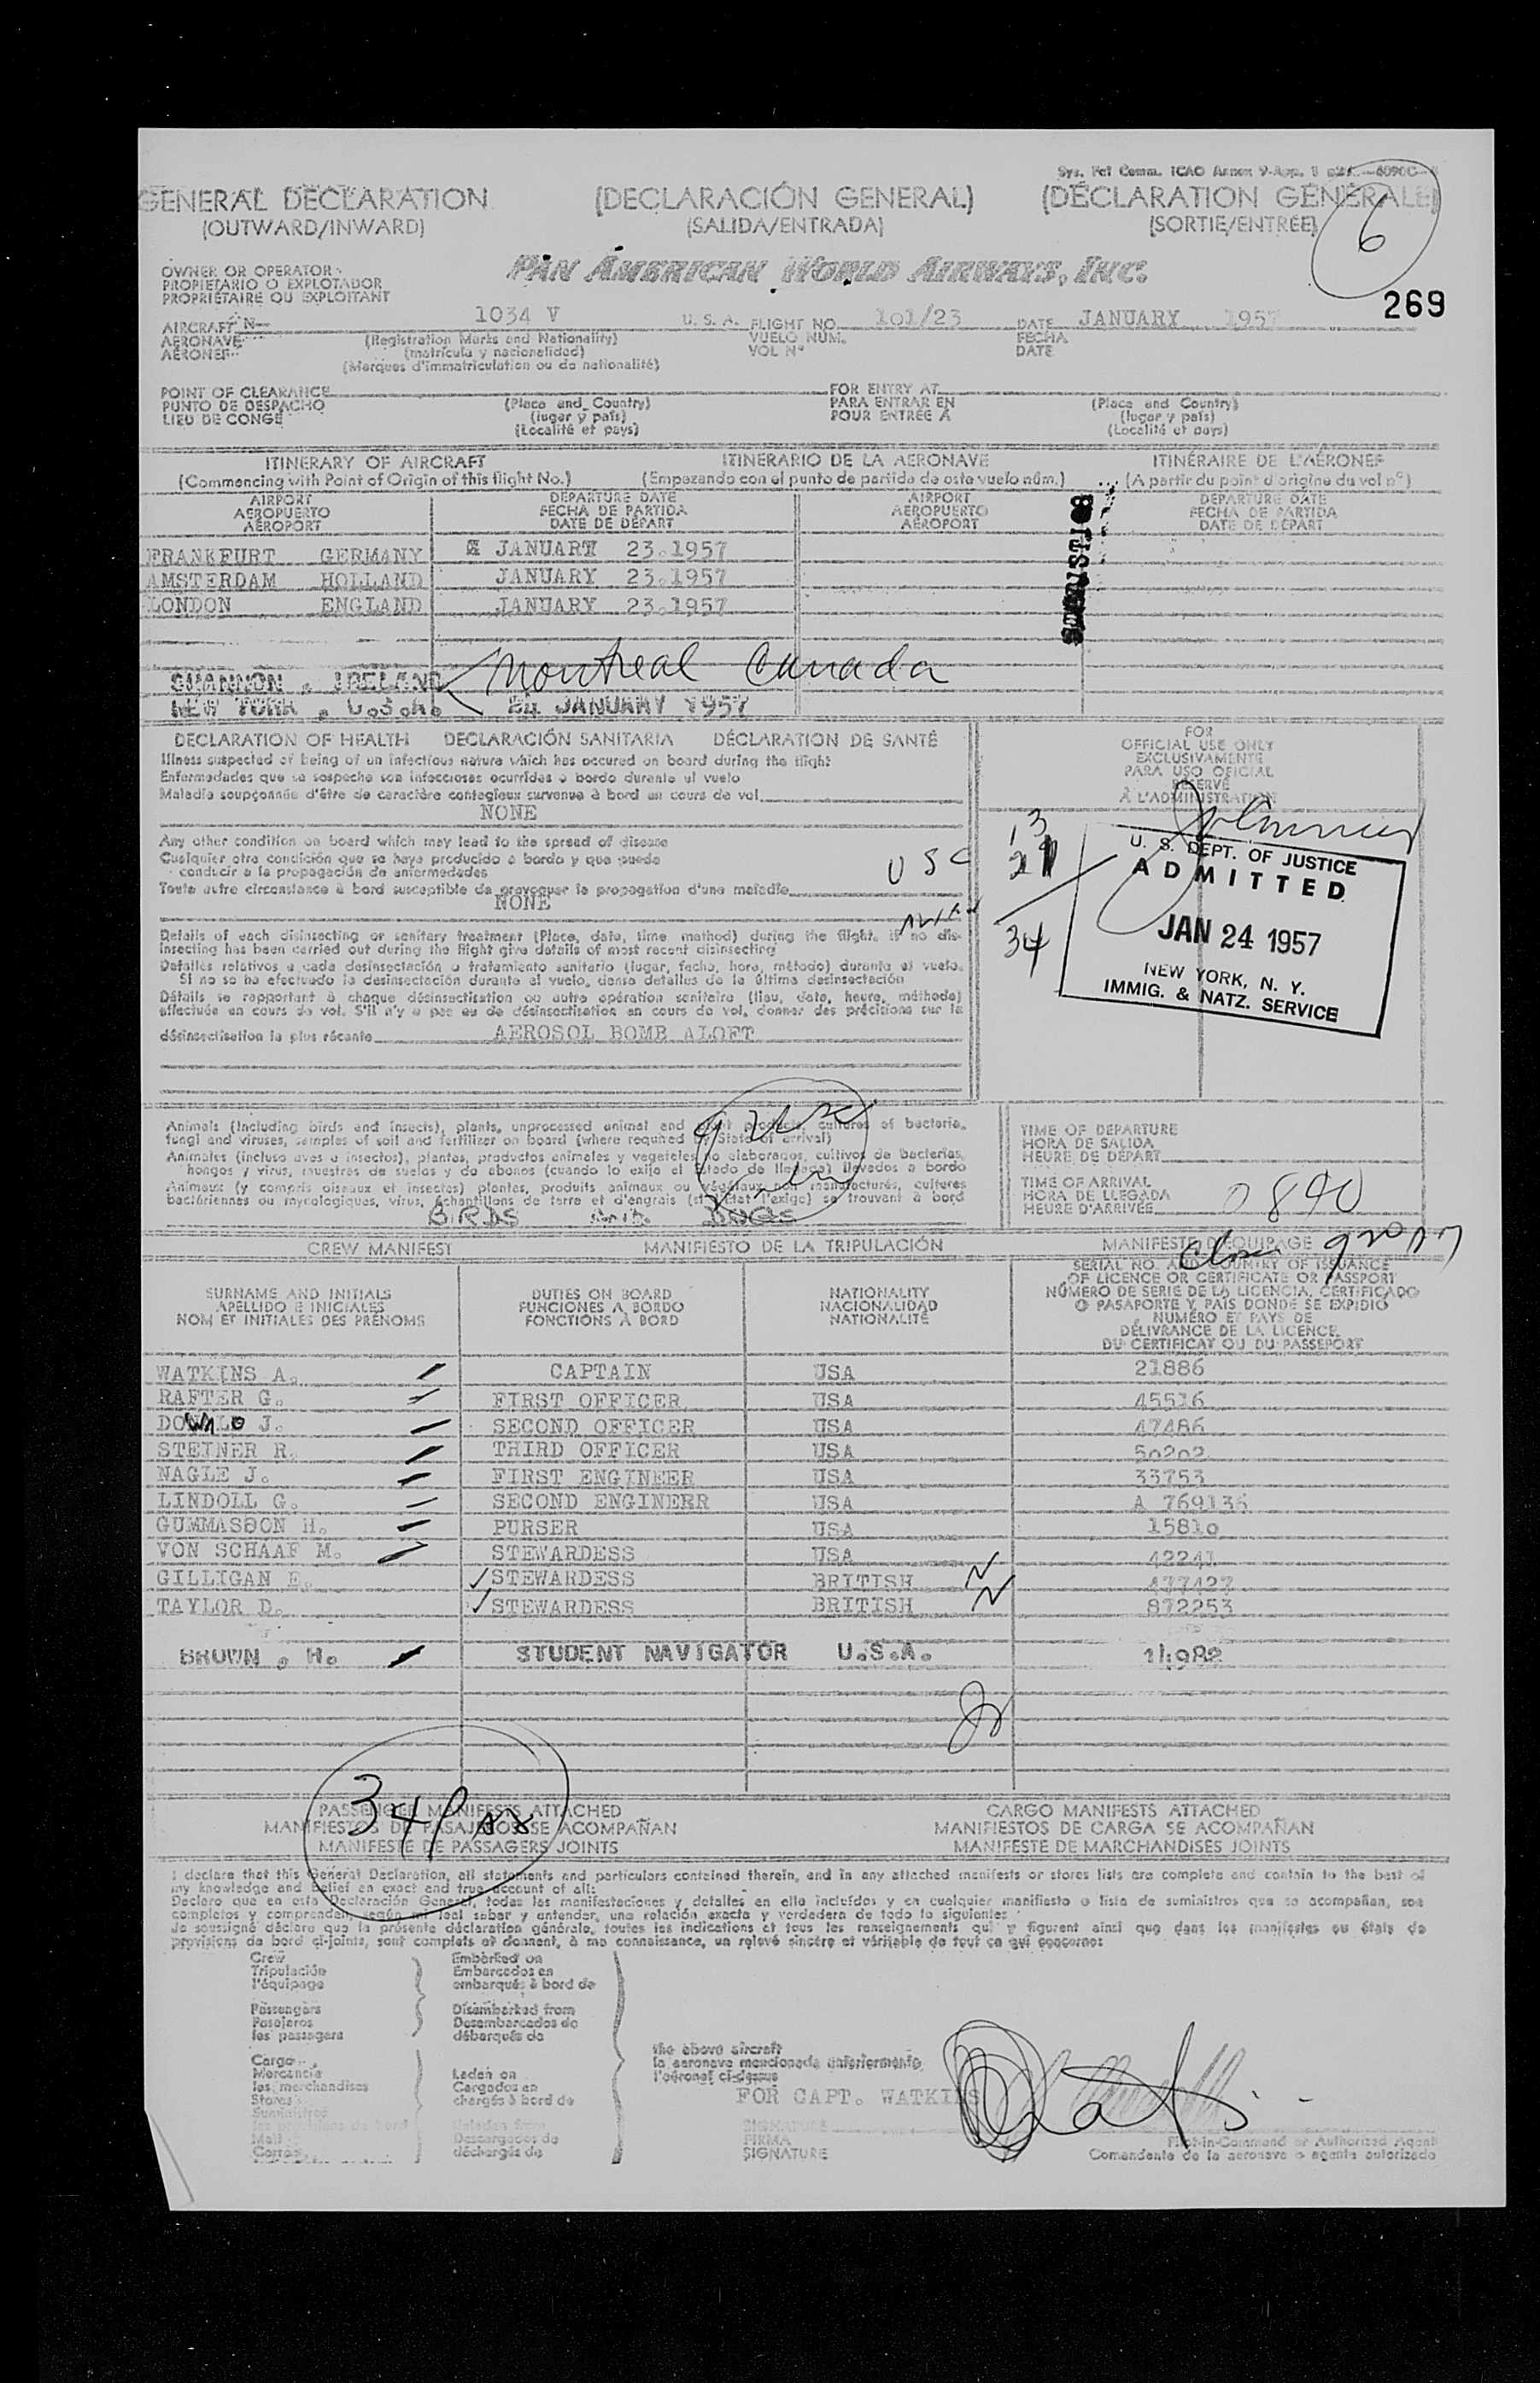 GENERAL DECLARATION (DECLARACIÓN GENERAL) (DÉCLARATION GÉNÉRALE)
(OUTWARD/INWARD) (SALIDA/ENTRADA) (SORTIE/ENTRÉE)
6
OWNER OR OPERATOR
PROPIETARIO O EXPLOTADOR
PROPRIÉTAIRE OU EXPLOITANT
PAN AMERICAN WORLD AIRWAYS, INC.
269
AIRCRAFT N 1034 V U. S. A. FLIGHT NO. 101/23 DATE JANUARY 1957
AERONAVE (Registration Marks and Nationality) VUELO NÚM. FECHA
AÉRONEF (matrícula y nacionalidad) VOL Nº DATE
(Marques d'immatriculation ou de nationalité)
POINT OF CLEARANCE FOR ENTRY AT
PUNTO DE DESPACHO (Place and Country) PARA ENTRAR EN (Place and Country)
LIEU DE CONGÉ (lugar y país) POUR ENTRÉE À (lugar y país)
(Localité et pays) (Localité et pays)
ITINERARY OF AIRCRAFT ITINERARIO DE LA AERONAVE ITINÉRAIRE DE L'AÉRONEF
(Commencing with Point of Origin of this flight No.) (Empezando con el punto de partida de este vuelo núm.) (A partir du point d'origine du vol nº)
AIRPORT DEPARTURE DATE AIRPORT DEPARTURE DATE
AEROPUERTO FECHA DE PARTIDA AEROPUERTO FECHA DE PARTIDA
AÉROPORT DATE DE DÉPART AÉROPORT DATE DE DÉPART
FRANKFURT GERMANY JANUARY 23.1957
AMSTERDAM HOLLAND JANUARY 23.1957
LONDON ENGLAND JANUARY 23.1957
Montreal Canada
SHANNON . IRELAND
NEW YORK . U.S.A. 24 JANUARY 1957
DECLARATION OF HEALTH DECLARACIÓN SANITARIA DÉCLARATION DE SANTÉ
Illness suspected of being of an infectious nature which has occured on board during the flight
Enfermedades que se sospecha son infecciosas ocurridas a bordo durante el vuelo
Maladie soupçonnée d'être de caractère contagieux survenue à bord au cours de vol
NONE
Any other condition on board which may lead to the spread of disease
Cualquier otra condición que se haya producido a bordo y que pueda
conducir a la propagación de enfermedades
Toute autre circonstance à bord susceptible de provoquer la propagation d'une maladie
NONE
Details of each disinsecting or sanitary treatment (Place, date, time method) during the flight. If no dis-
insecting has been carried out during the flight give details of most recent disinsecting
Detalles relativos a cada desinsectación o tratamiento sanitario (lugar, fecha, hora, método) durante el vuelo.
Si no se ha efectuado la desinsectación durante el vuelo, dense detalles de la última desinsectación
Détails se rapportant à chaque désinsectisation ou autre opération sanitaire (lieu, date, heure, méthode)
effectuée au cours de vol. S'il n'y a pas eu de désinsectisation au cours de vol, donner des précisions sur la
désinsectisation la plus récente AEROSOL BOMB ALOFT
FOR
OFFICIAL USE ONLY
EXCLUSIVAMENTE
PARA USO OFICIAL
RÉSERVÉ
À L'ADMINISTRATION
USC 13
21
34
U. S. DEPT. OF JUSTICE
ADMITTED
JAN 24 1957
NEW YORK, N. Y.
IMMIG. & NATZ. SERVICE
Animals (including birds and insects), plants, unprocessed animal and plant products, cultures of bacteria,
fungi and viruses, samples of soil and fertilizer on board (where required by State of arrival)
Animales (incluso aves e insectos), plantas, productos animales y vegetales no elaborados, cultivos de bacterias,
hongos y virus, muestras de suelos y de abonos (cuando lo exija el Estado de llegada) llevados a bordo
Animaux (y compris oiseaux et insectes) plantes, produits animaux ou végétaux non manufacturés, cultures
bactériennes ou mycologiques, virus, échantillons de terre et d'engrais (si l'État l'exige) se trouvant à bord
BIRDS AND DOGS
TIME OF DEPARTURE
HORA DE SALIDA
HEURE DE DÉPART
TIME OF ARRIVAL
HORA DE LLEGADA
HEURE D'ARRIVÉE 0840
CREW MANIFEST MANIFIESTO DE LA TRIPULACIÓN MANIFESTE D'ÉQUIPAGE
SURNAME AND INITIALS DUTIES ON BOARD NATIONALITY
APELLIDO E INICIALES FUNCIONES A BORDO NACIONALIDAD
NOM ET INITIALES DES PRÉNOMS FONCTIONS À BORD NATIONALITÉ
SERIAL NO. AND COUNTRY OF ISSUANCE
OF LICENCE OR CERTIFICATE OR PASSPORT
NÚMERO DE SERIE DE LA LICENCIA, CERTIFICADO
O PASAPORTE Y PAÍS DONDE SE EXPIDIÓ
NUMÉRO ET PAYS DE
DÉLIVRANCE DE LA LICENCE,
DU CERTIFICAT OU DU PASSEPORT
WATKINS A. CAPTAIN USA 21886
RAFTER G. FIRST OFFICER USA 45516
J. SECOND OFFICER USA 47486
STEINER R. THIRD OFFICER USA 50202
NAGLE J. FIRST ENGINEER USA 33753
LINDOLL G. SECOND ENGINERR USA A 769136
GUMMASSON H. PURSER USA 15810
VON SCHAAF M. STEWARDESS USA 42241
GILLIGAN E. STEWARDESS BRITISH 477427
TAYLOR D. STEWARDESS BRITISH 872253
BROWN . H. STUDENT NAVIGATOR U.S.A. 14982
34 Pax
PASSENGER MANIFESTS ATTACHED CARGO MANIFESTS ATTACHED
MANIFIESTOS DE PASAJEROS SE ACOMPAÑAN MANIFIESTOS DE CARGA SE ACOMPAÑAN
MANIFESTE DE PASSAGERS JOINTS MANIFESTE DE MARCHANDISES JOINTS
I declare that this General Declaration, all statements and particulars contained therein, and in any attached manifests or stores lists are complete and contain to the best of
my knowledge and belief an exact and true account of all:
Declaro que en esta Declaración General, todas las manifestaciones y detalles en ella incluídos y en cualquier manifiesto o lista de suministros que se acompañan, son
completos y comprenden según mi leal saber y entender, una relación exacta y verdadera de todo lo siguientes
Je soussigné déclare que la présente déclaration générale, toutes les indications et tous les renseignements qui y figurent ainsi que dans les manifestes ou états de
provisions de bord ci-joints, sont complets et donnent, à ma connaissance, un relevé sincère et véritable de tout ce qui concerne:
Crew Embarked on
Tripulación Embarcados en
l'équipage embarqués à bord de
Passengers Disembarked from
Pasajeros Desembarcados de
les passagers débarqués de
the above aircraft
la aeronave mencionada anteriormente
l'aéronef ci-dessus
Cargo
Mercancía Laden on
les marchandises Cargados en
Stores chargés à bord de
Suministros
Mail
Descargados de
déchargés de
FOR CAPT. WATKINS
SIGNATURE
FIRMA
SIGNATURE
Pilot-in-Command or Authorized Agent
Comandante de la aeronave o agente autorizado